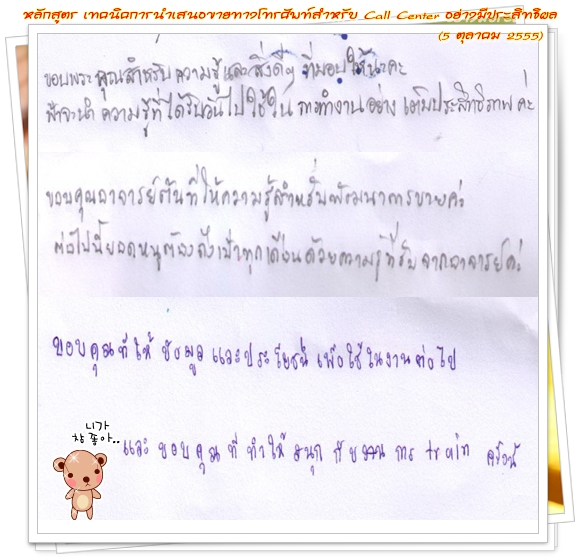 หลักสูตร เทคนิคการนำเสนอขายทางโทรศัพท์สำหรับ Call Center อย่างมีประสิทธิผล
(5 ตุลาคม 2555)
ขอบพระคุณสำหรับความรู้และสิ่งดีๆ ที่มอบให้นะคะ
จะนำ ความรู้ที่ได้รับวันนี้ไปใช้ใน การทำงานอย่าง เต็มประสิทธิภาพ ค่ะ
ขอบคุณอาจารย์ต้นที่ให้ความรู้สำหรับพัฒนาการขายค่ะ
ต่อไปนี้ยอดหนูต้องถึงเป้าทุกเดือนด้วยความรู้ที่รับจากอาจารย์ค่ะ
ขอบคุณที่ให้ ข้อมูล และประโยชน์ เพื่อใช้ในงานต่อไป
니가
참 좋아..
และ ขอบ คุณ ที่ ทำให้ สนุก กับ การ train ครั้งนี้